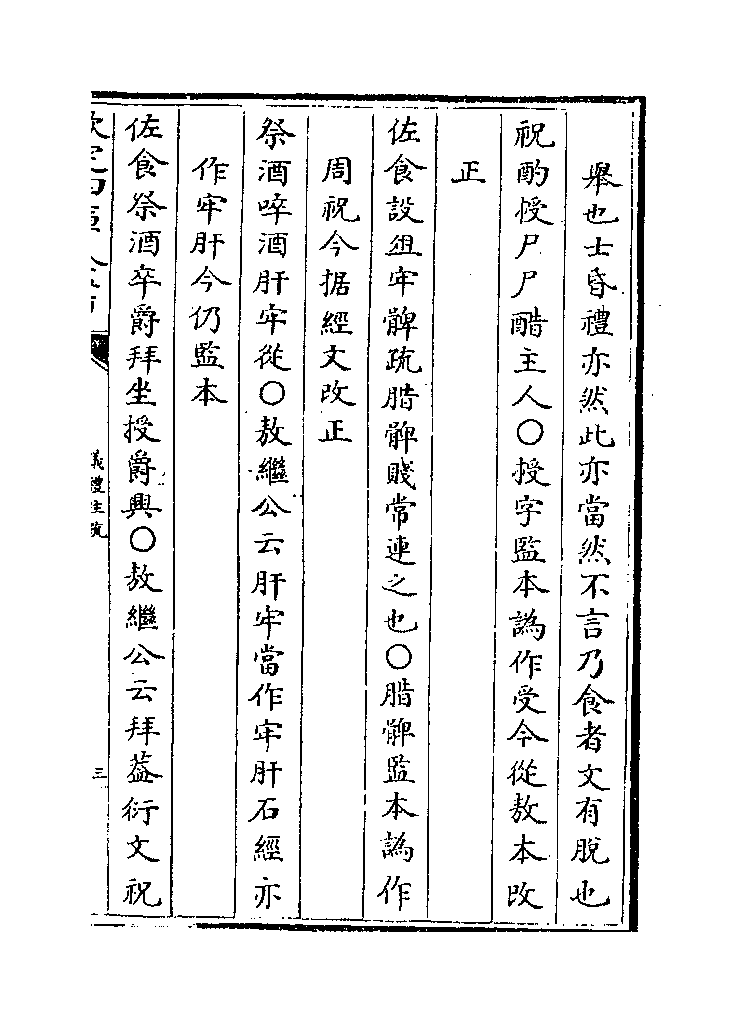 舉也士昏禮亦然此亦當然不言乃食者文有脫也
祝酌授尸尸醋主人〇授字監本譌作受今從敖本改
正
佐食設俎牢髀疏腊髀賤常連之也〇腊髀監本譌作
周祝今据經文改正
祭酒啐酒肝牢從〇敖繼公云肝牢當作牢肝石經亦
作牢肝今仍監本
佐食祭酒卒爵拜坐授爵興〇敖繼公云拜葢衍文祝
儀禮注疏
三